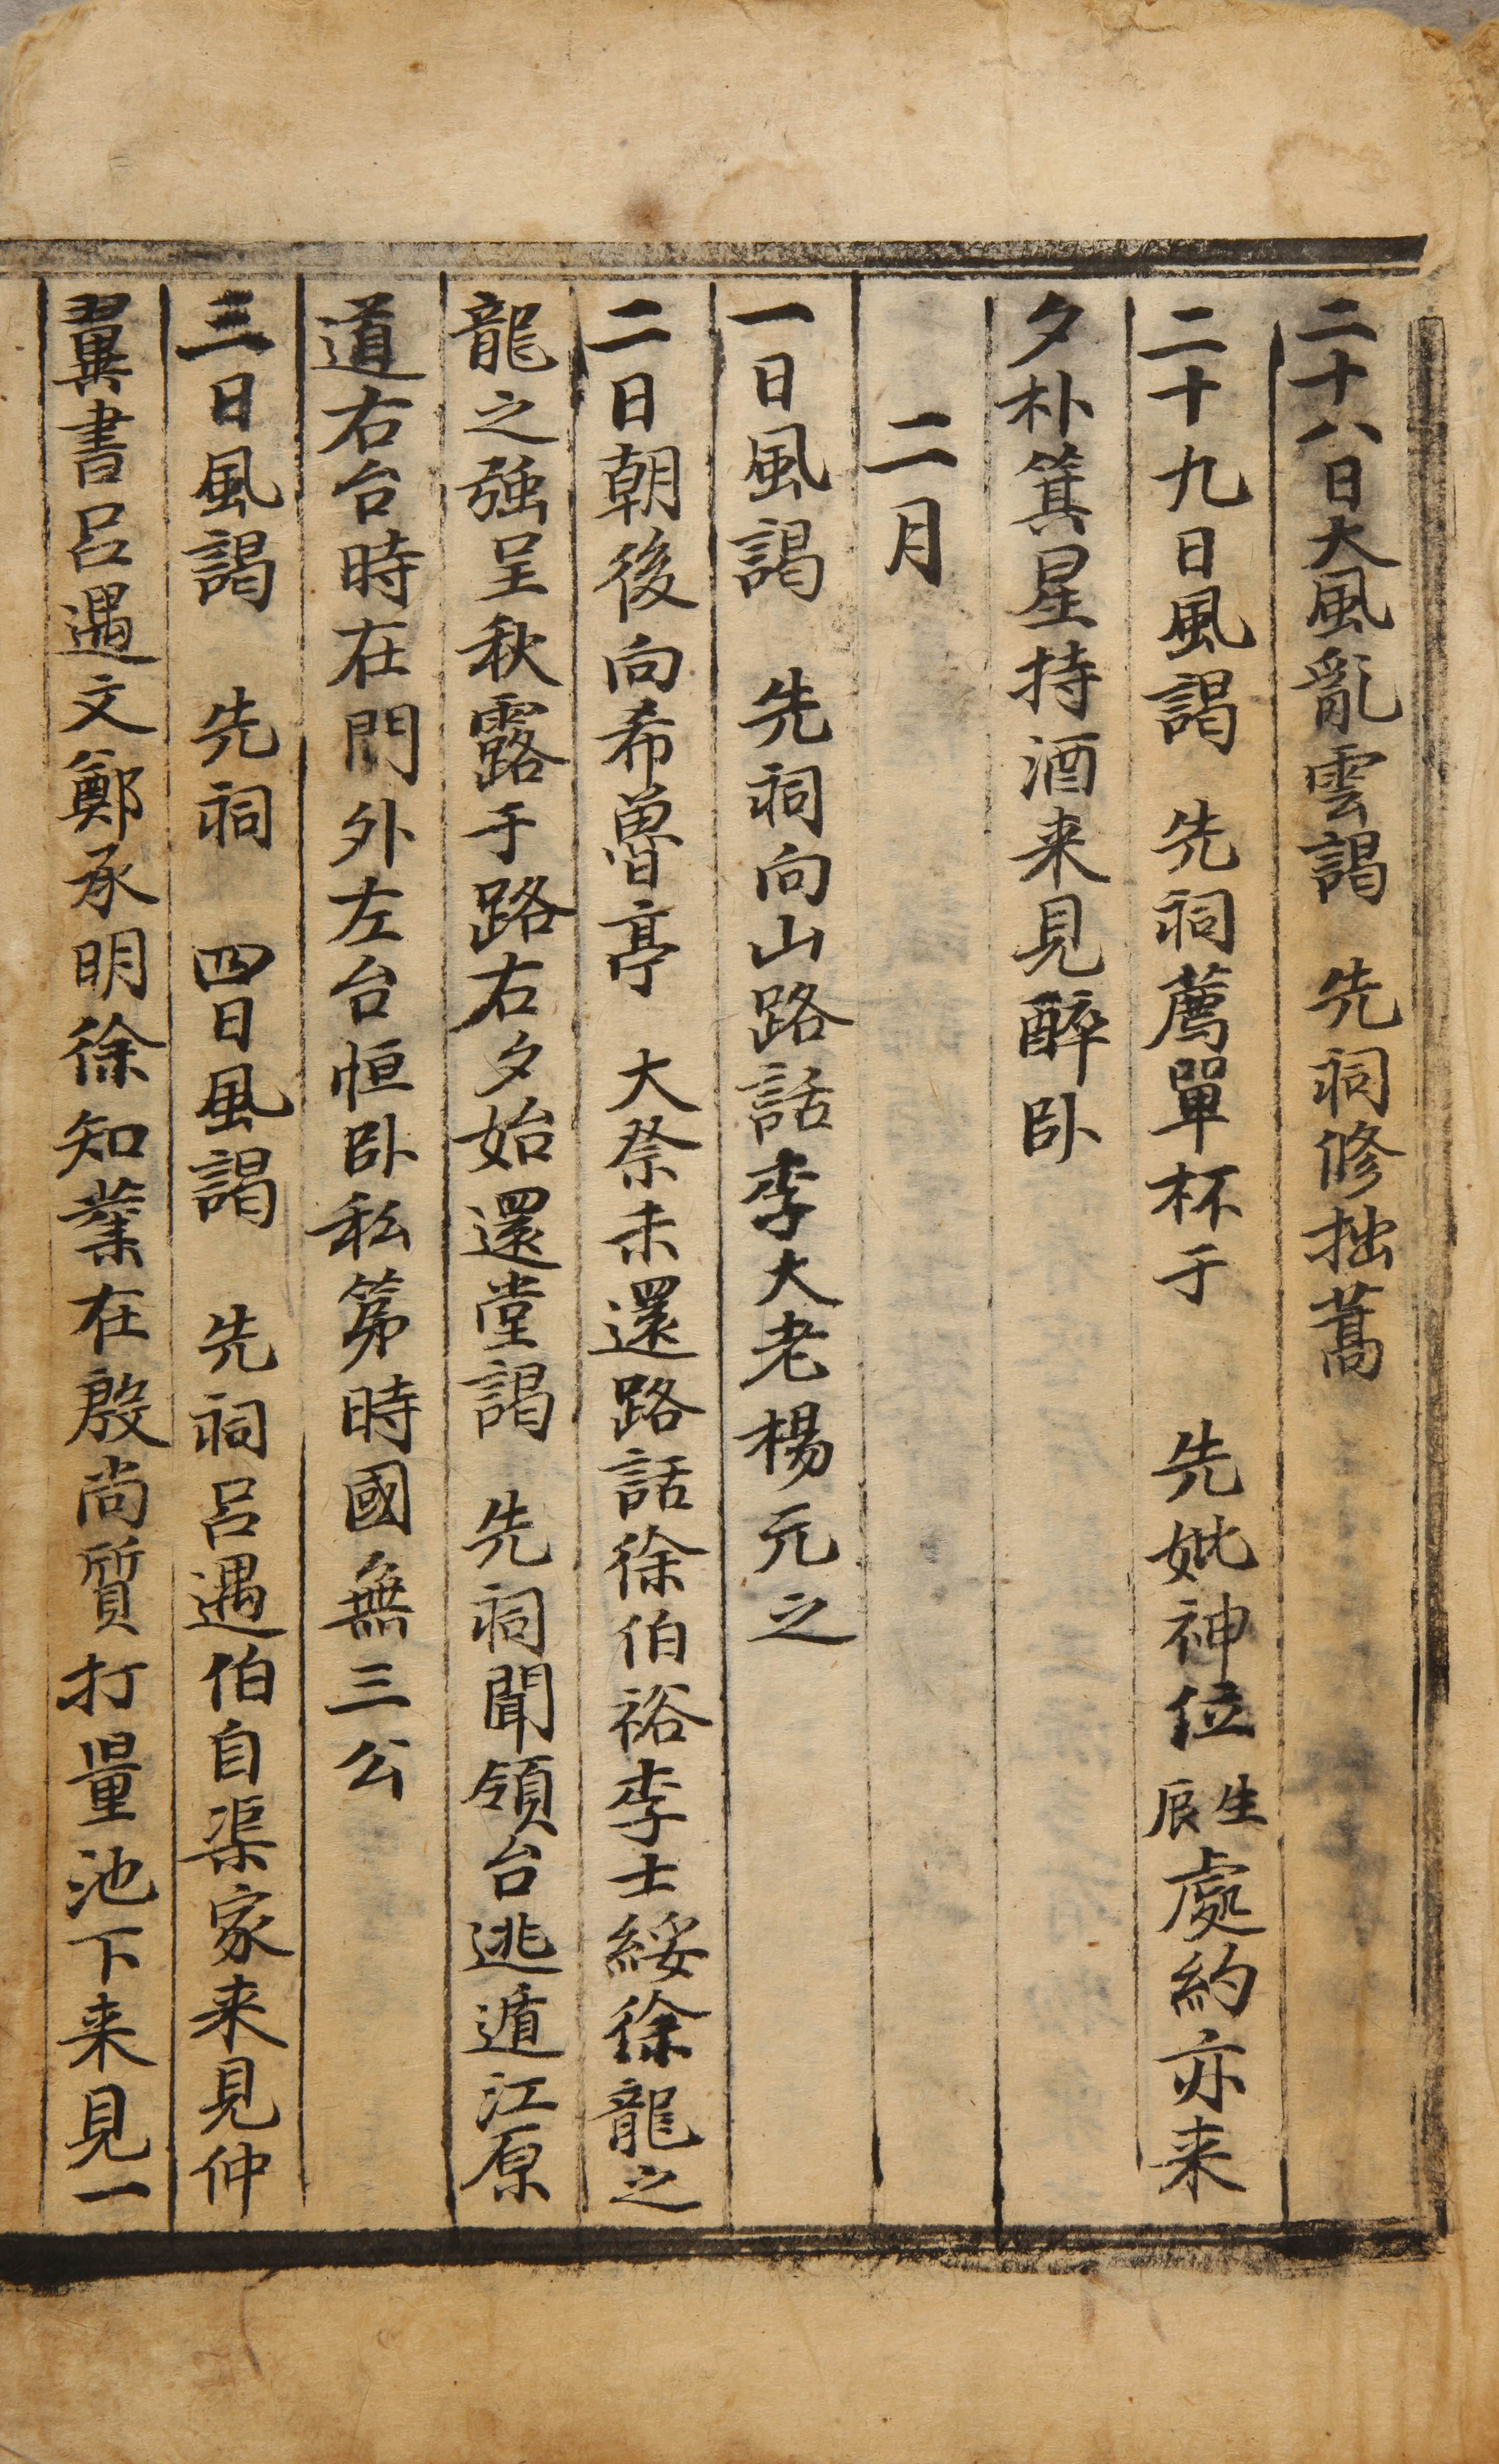 二十八日大風亂雲謁 先祠修拙蒿
二十九日風謁 先祠薦單杯于 先妣神位生辰處約亦来
夕朴箕星持酒来見醉臥
二月
一日風謁 先祠向山路話李大老楊元之
二日朝後向希魯亭 大祭未還路話徐伯裕李士綏徐龍之
龍之强呈秋露于路右夕始還堂謁 先祠聞領台逃遁江原
道右台時在門外左台恒臥私第時國無三公
三日風謁 先祠 四日風謁 先祠呂遇伯自渠家来見仲
翼書呂遇文鄭承明徐知業在殷尚質打量池下来見一